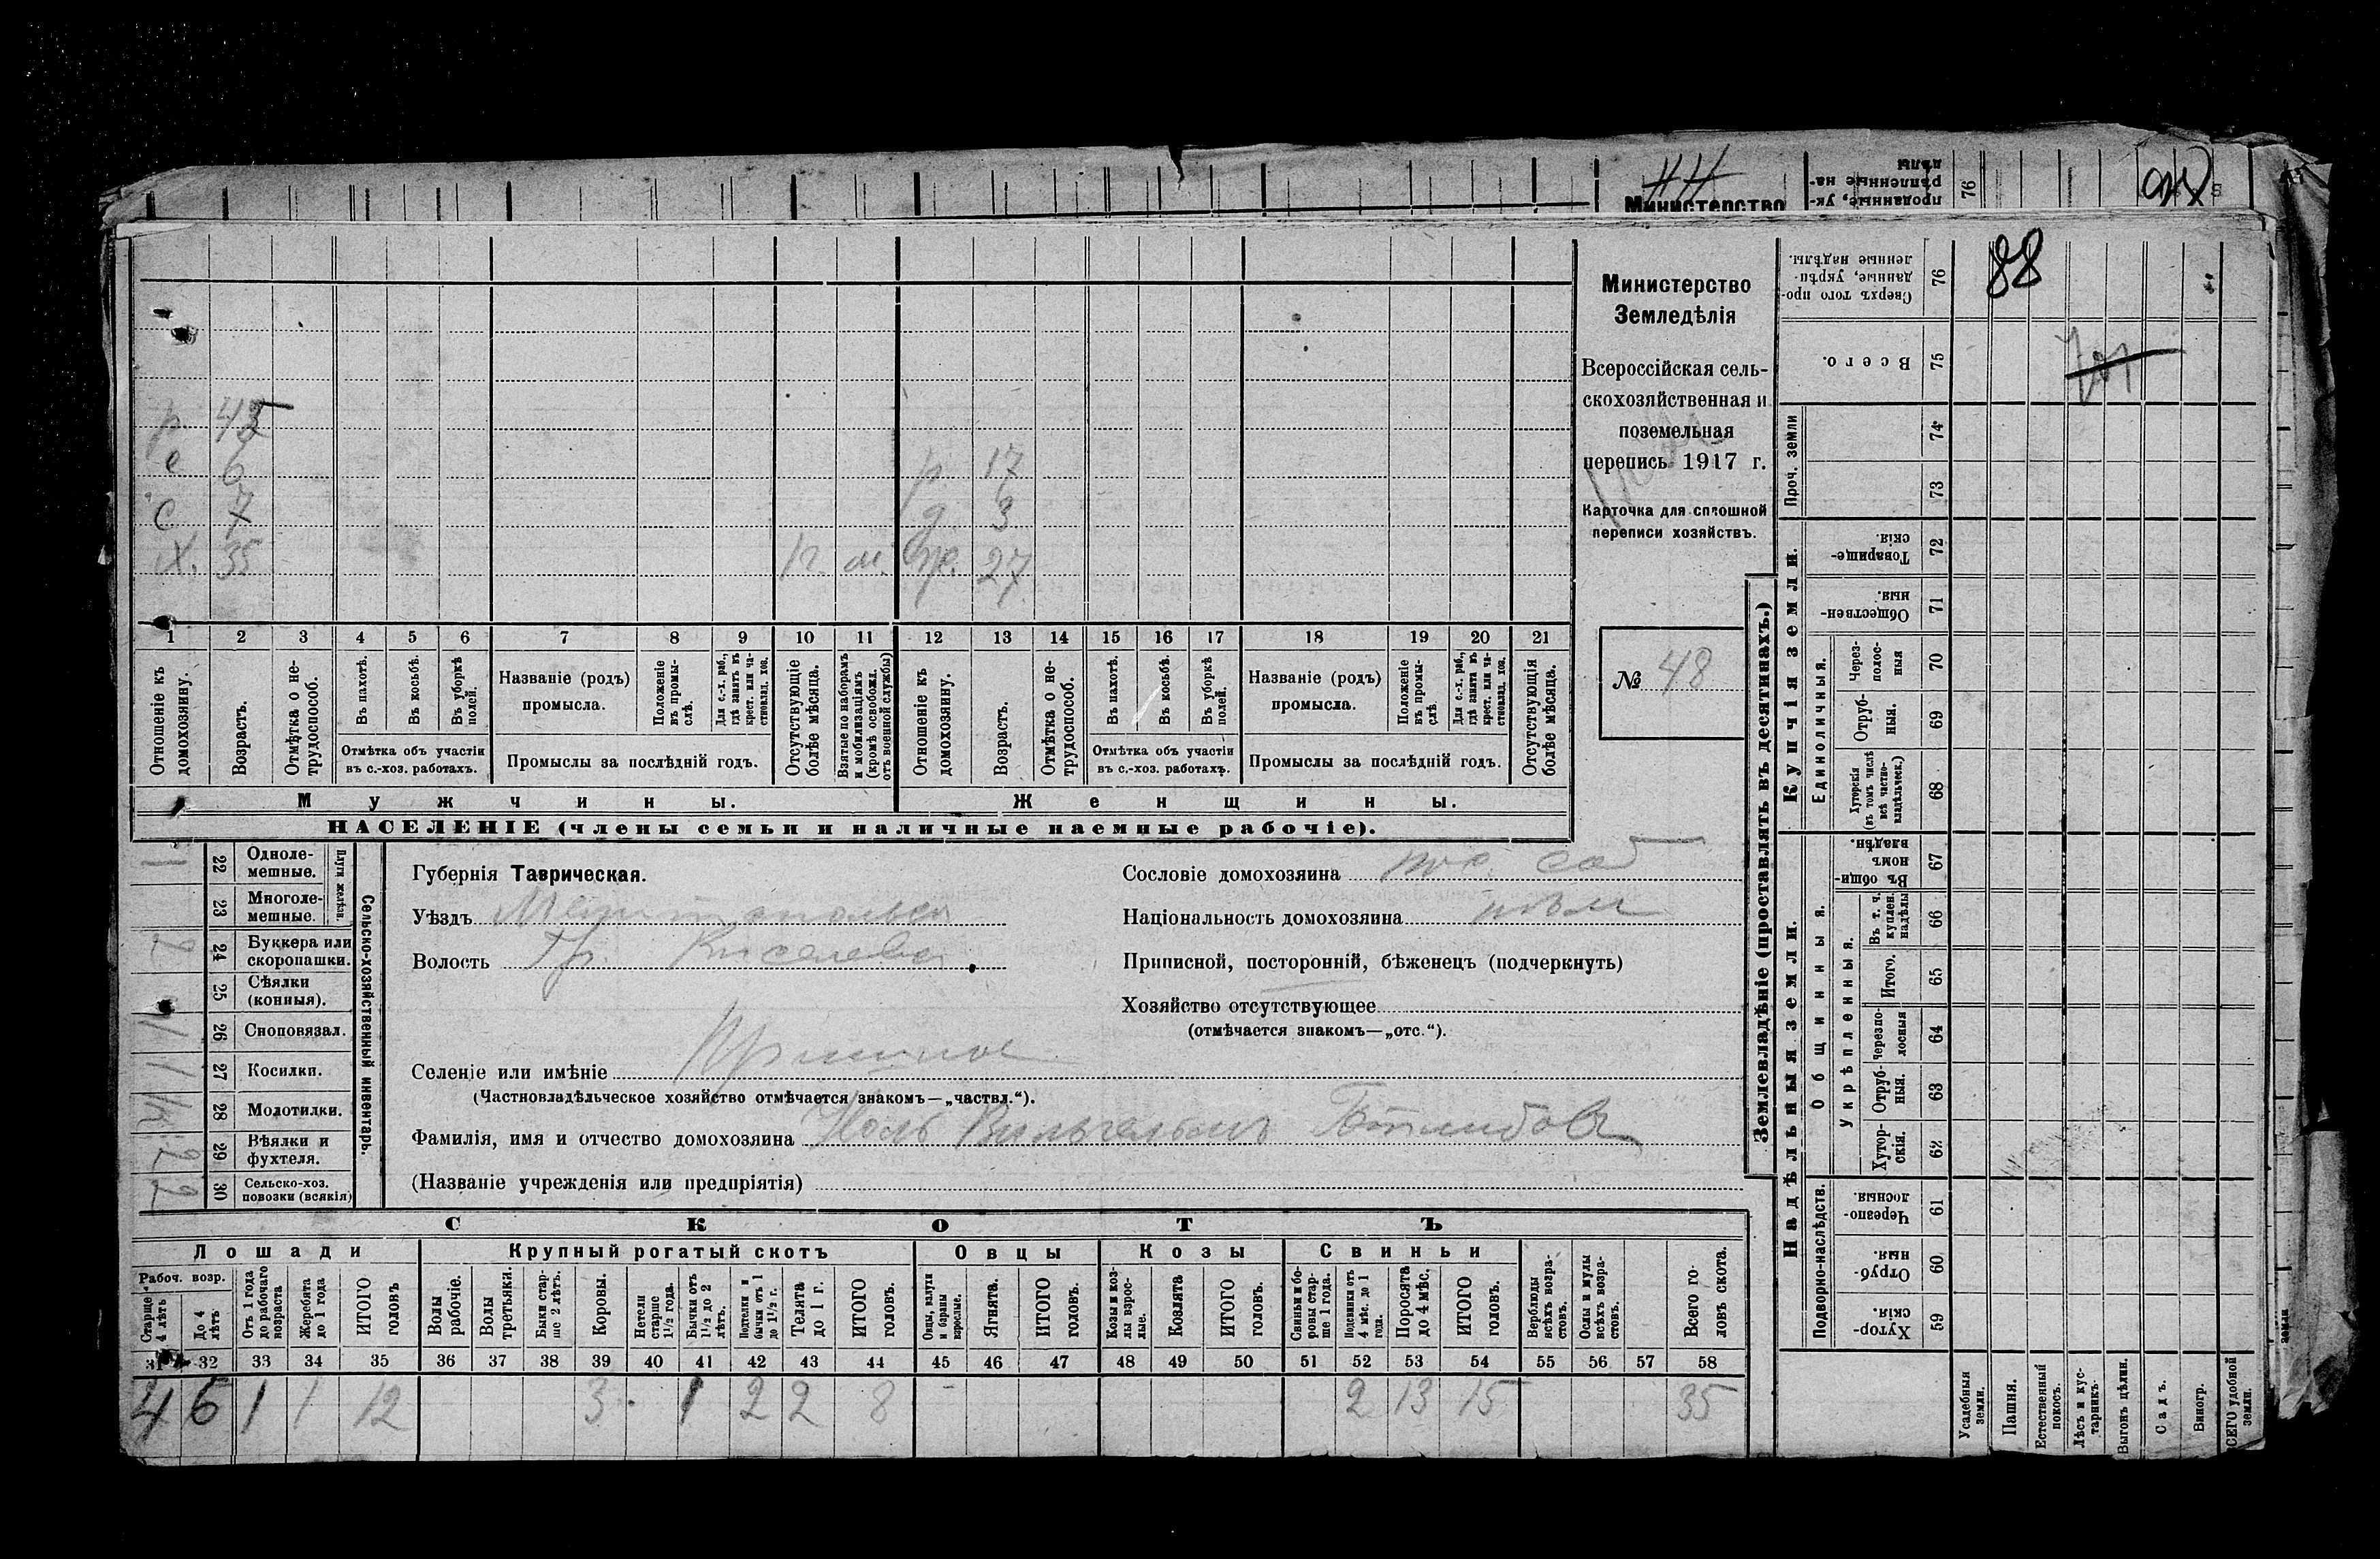 Министерство
проданные, ук-
рѣпленные на-
дѣлы
76
88
р. 45
с 6
с 7
х. 35
р. 17
д. 3
ж. 27
1 2 3 4 5 6 7 8 9 10 11 12 13 14 15 16 17 18 19 20 21
Отношеніе къ домохозяину.
Возрастъ.
Отмѣтка о не-трудоспособ.
Въ пахотѣ.
Въ косьбѣ.
Въ уборкѣ полей.
Отмѣтка объ участіи
въ с.-хоз. работахъ.
Названіе (родъ)
промысла.
Положеніе въ промы-слѣ.
Для с.-х. раб., гдѣ занятъ въ крест. или ча-стновлад. хоз.
Промыслы за послѣдній годъ.
Отсутствующіе болѣе мѣсяца.
Взятые по наборамъ и мобилизаціямъ (кромѣ освобожд. отъ военной службы)
Отношеніе къ домохозяину.
Возрастъ.
Отмѣтка о не-трудоспособ.
Въ пахотѣ.
Въ косьбѣ.
Въ уборкѣ полей.
Отмѣтка объ участіи
въ с.-хоз. работахъ.
Названіе (родъ)
промысла.
Положеніе въ промы-слѣ.
Для с.-х. раб., гдѣ занята въ крест. или ча-стновлад. хоз.
Промыслы за послѣдній годъ.
Отсутствующія болѣе мѣсяца.
Мужчины.
Женщины.
НАСЕЛЕНІЕ (члены семьи и наличные наемные рабочіе).
Министерство
Земледѣлія
Всероссійская сель-
скохозяйственная и
поземельная
перепись 1917 г.
Карточка для сплошной
переписи хозяйствъ.
№ 48
Сельско-хозяйственный инвентарь.
Плуги желѣзн.
22 Одноле-мешные. 1
23 Многоле-мешные.
24 Буккера или скоропашки. 2
25 Сѣялки (конныя).
26 Сноповязал.
27 Косилки. 1
28 Молотилки.
29 Вѣялки и фухтеля.
30 Сельско-хоз. повозки (всякія) 2
Губернія Таврическая.
Уѣздъ Мелитопольск
Волость Гр.
Селеніе или имѣніе
(Частновладѣльческое хозяйство отмѣчается знакомъ—„частвл.“).
Фамилія, имя и отчество домохозяина Ноль Вильгельмъ
(Названіе учрежденія или предпріятія)
Сословіе домохозяина пос. соб
Національность домохозяина нѣм
Приписной, посторонній, бѣженецъ (подчеркнуть)
Хозяйство отсутствующее
(отмѣчается знакомъ—„отс.“).
СКОТЪ
Лошади
Крупный рогатый скотъ
Овцы
Козы
Свиньи
Рабоч. возр.
Старше 4 лѣтъ
До 4 лѣтъ
Отъ 1 года до рабочаго возраста
Жеребята до 1 года
ИТОГО головъ
Волы рабочіе.
Волы третьяки.
Быки стар-ше 2 лѣтъ.
Коровы.
Нетели старше 1½ года.
Бычки отъ 1½ до 2 лѣтъ.
Подтелки и бычки отъ 1 до 1½ г.
Телята до 1 г.
ИТОГО головъ.
Овцы, валухи и бараны взрослые.
Ягнята.
ИТОГО головъ.
Козы и коз-лы взрос-лые.
Козлята
ИТОГО головъ.
Свиньи и бо-ровы стар-ше 1 года.
Подсвинки отъ 4 мѣс. до 1 года.
Поросята до 4 мѣс.
ИТОГО головъ.
Верблюды всѣхъ возра-стовъ.
Ослы и мулы всѣхъ возра-стовъ.
Всего го-ловъ скота.
31 32 33 34 35 36 37 38 39 40 41 42 43 44 45 46 47 48 49 50 51 52 53 54 55 56 57 58
4 6 1 1 12 3 1 2 2 8 - 2 13 15 35
Землевладѣніе (проставлять въ десятинахъ.)
Надѣльныя земли.
Купчія земли.
Сверхъ того про-данные, укрѣп-ленные надѣлы. 76
Всего. 75
Проч. земли 74
73
Товарище-скія. 72
Обществен-ныя. 71
Единоличныя.
Через-полос-ныя 70
Отруб-ныя. 69
Хуторскія (въ томъ числѣ всѣ частно-владѣльческ.) 68
Общинныя.
Въ общин-номъ владѣн. 67
Укрѣпленныя.
Въ т. ч. куплен. надѣлы 66
Итого. 65
Черезпо-лосныя 64
Отруб-ныя. 63
Хутор-скія. 62
Подворно-наслѣдств.
Черезпо-лосныя. 61
Отруб-ныя. 60
Хутор-скія. 59
Усадебныя земли.
Пашня.
Естественный покосъ.
Лѣсъ и кус-тарникъ
Выгонъ цѣлин.
Садъ.
Виногр.
ВСЕГО удобной земли.